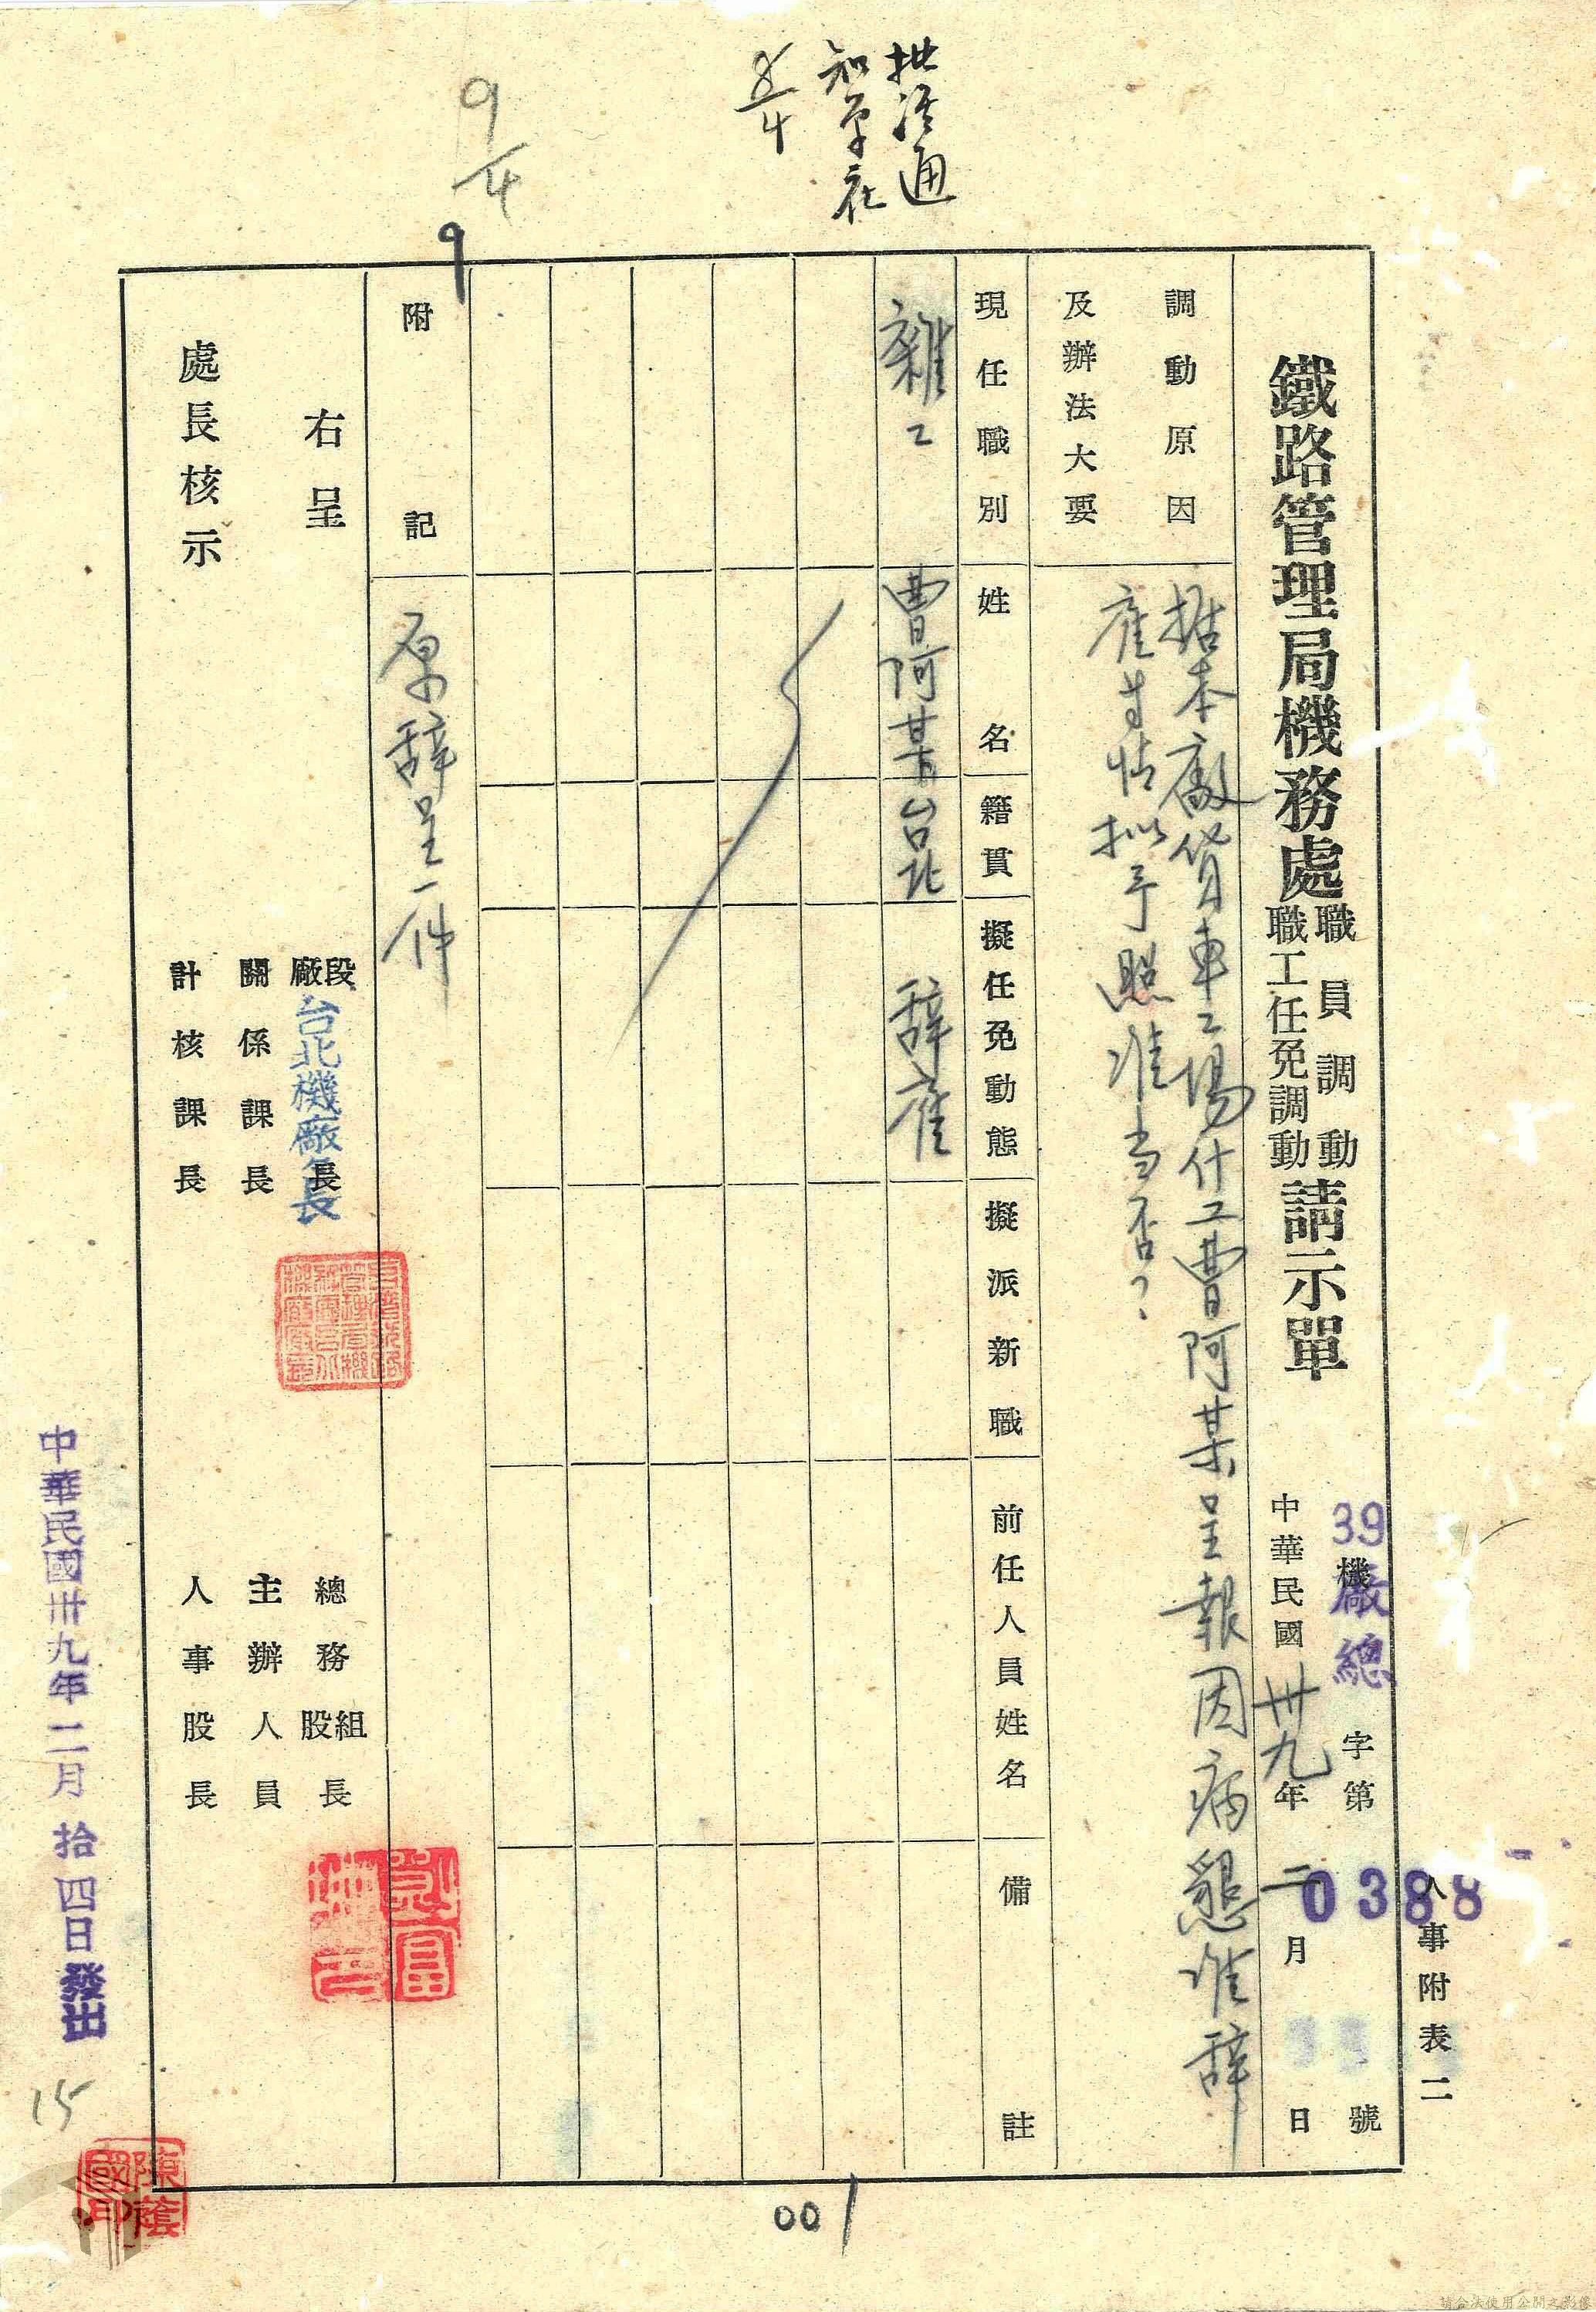 人事附表二
鐵路管理局機務處職員調動職工任免調動請示單
39機廠總字第0388號
中華民國卅九年二月 日
調動原因及辦法大要
据本廠貨車工場什工曹阿某呈報因病懇准辞
准当否?
現任職別 姓名 籍貫 擬任免動態 擬派新職 前任人員姓名 備註
雜工 曹阿某 台北 辞
附記
原辞呈一件
右呈
處長核示
段廠長 台北機廠長
關係課長
計核課長
總務股組長
主辦人員
人事股長
中華民國卅九年二月拾四日發出
15
陳蔭國印
9/4
9
8/4
001
請合法使用公開之影像